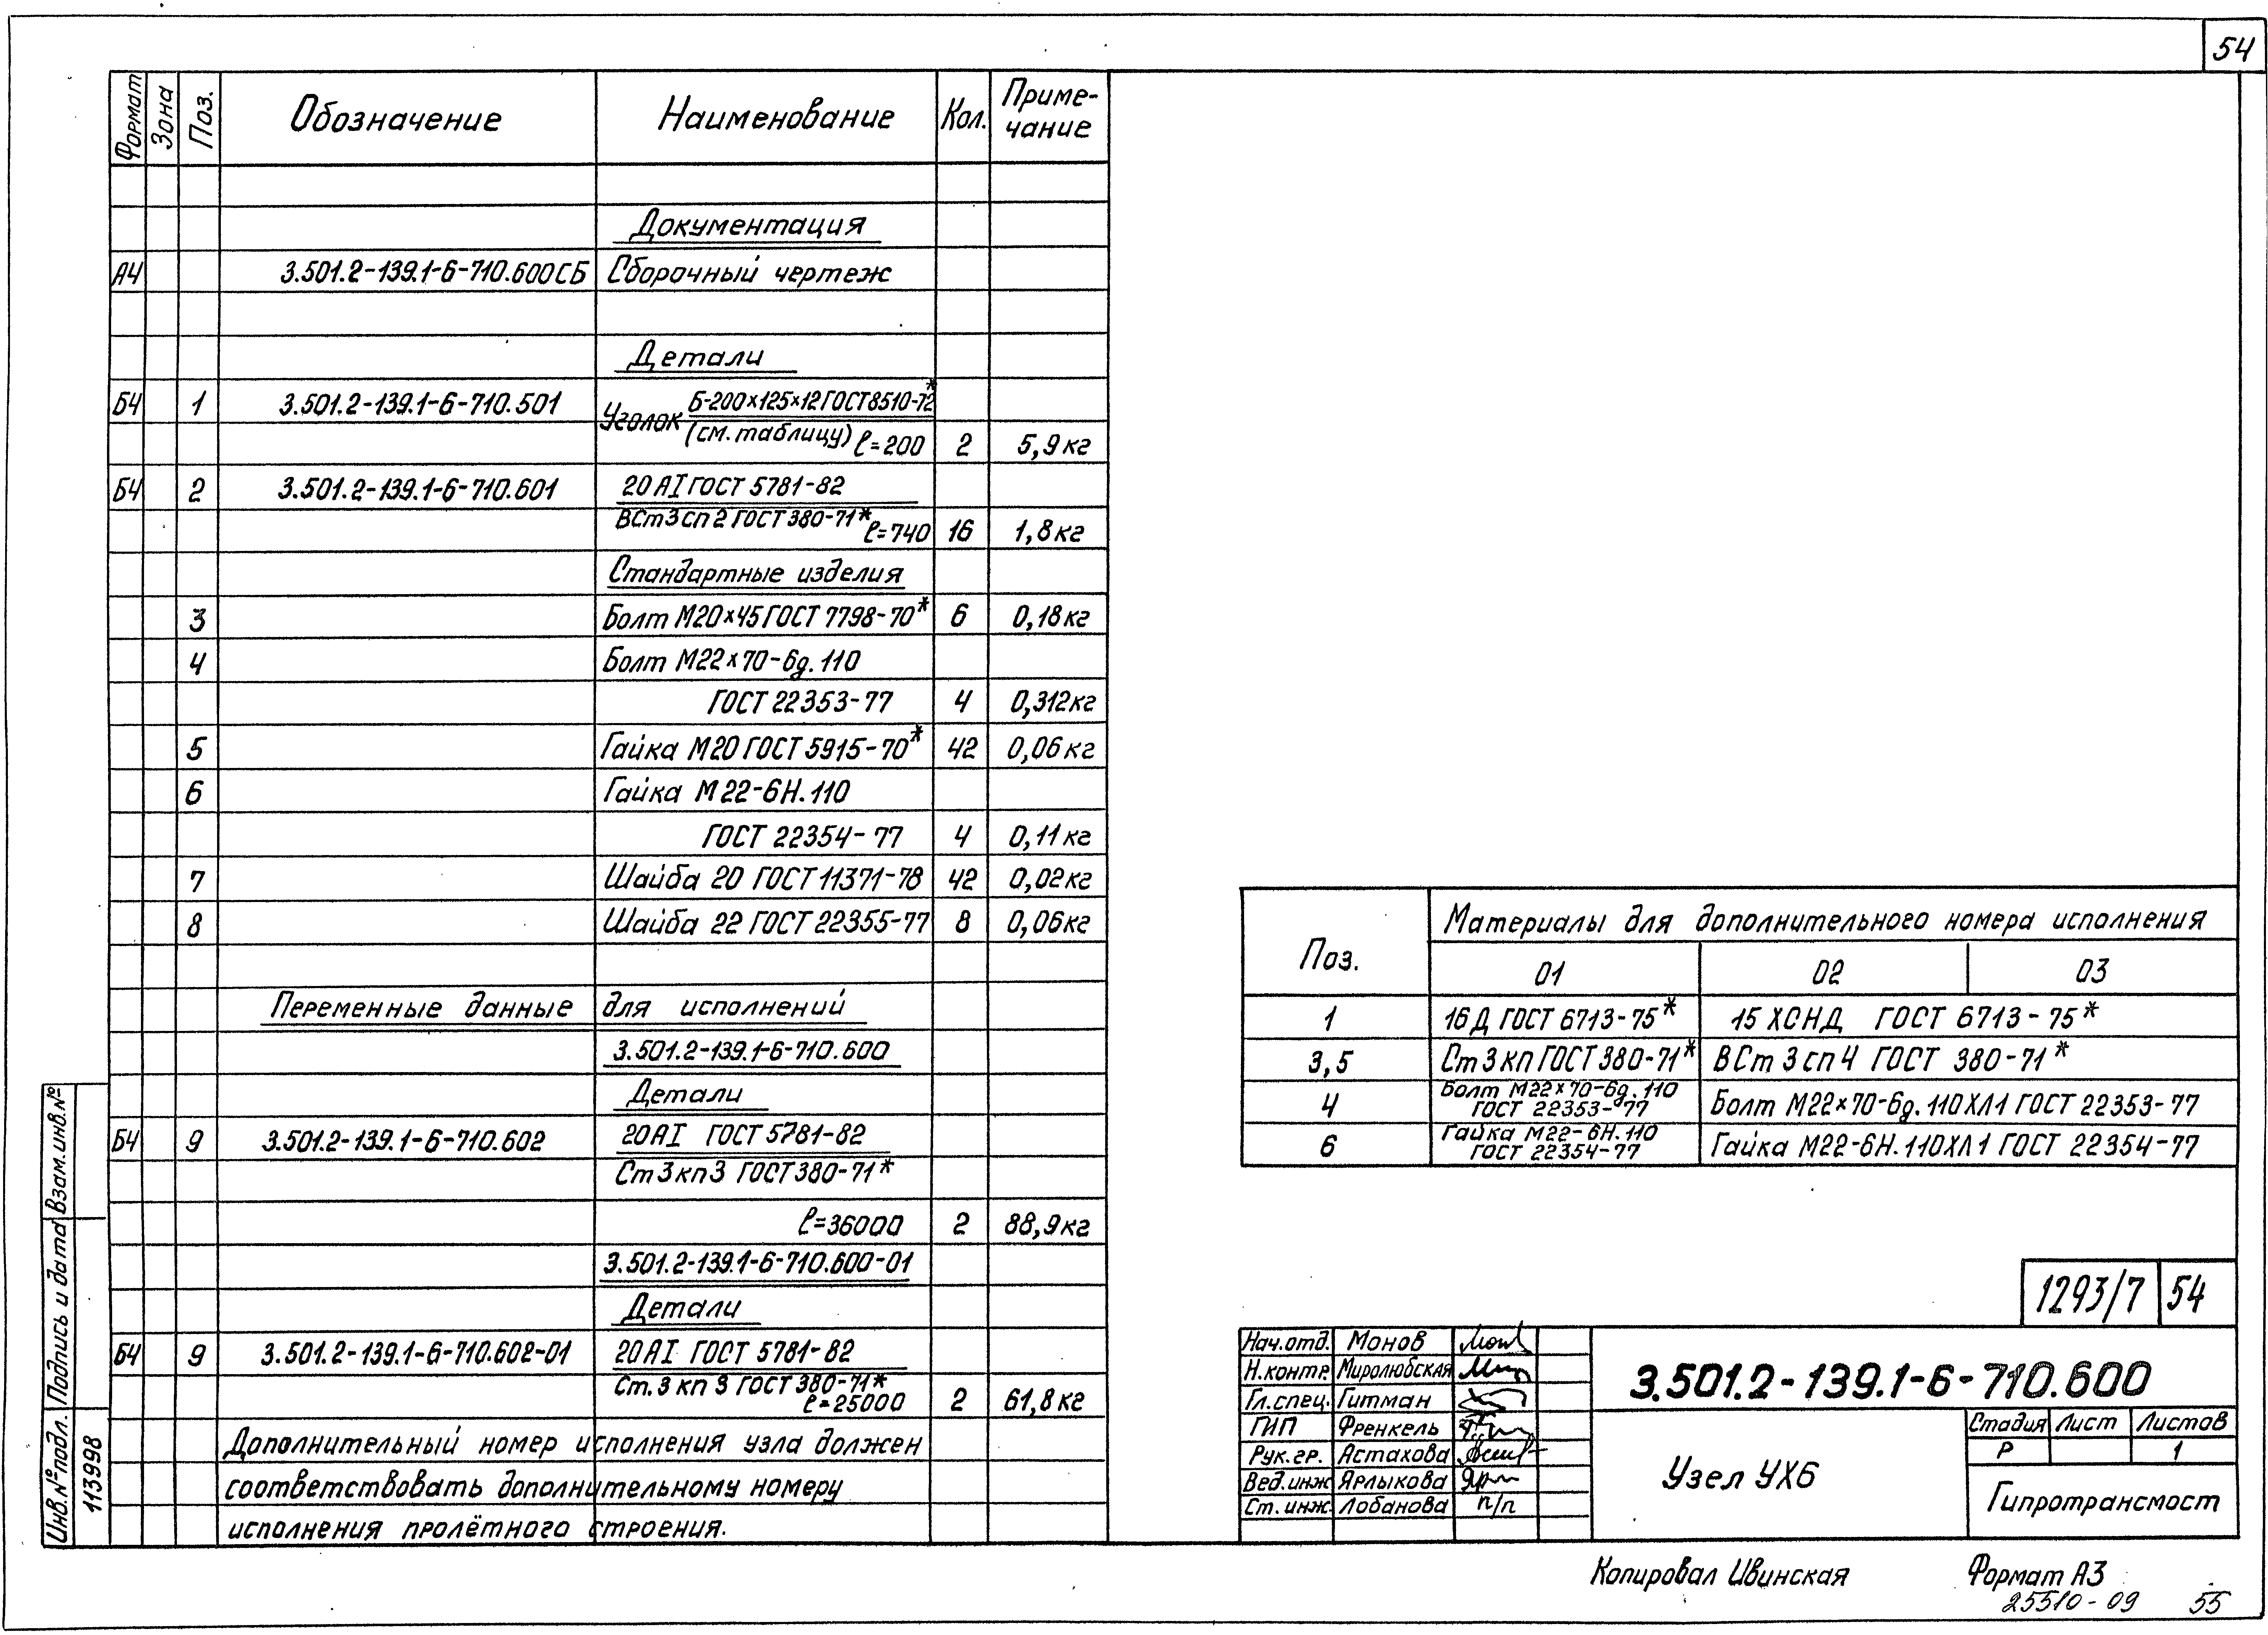 54
Формат Зона Поз. Обозначение Наименование Кол. Приме-
чание
Документация
А4 3.501.2-139.1-6-710.600СБ Сборочный чертеж
Детали
Б4 1 3.501.2-139.1-6-710.501 Уголок Б-200×125×12 ГОСТ 8510-72*
(см. таблицу) ℓ=200 2 5,9 кг
Б4 2 3.501.2-139.1-6-710.601 20 АI ГОСТ 5781-82
ВСт3сп2 ГОСТ 380-71* ℓ=740 16 1,8 кг
Стандартные изделия
3 Болт М20×45 ГОСТ 7798-70* 6 0,18 кг
4 Болт М22×70-6g.110
ГОСТ 22353-77 4 0,312 кг
5 Гайка М20 ГОСТ 5915-70* 42 0,06 кг
6 Гайка М22-6Н.110
ГОСТ 22354-77 4 0,11 кг
7 Шайба 20 ГОСТ 11371-78 42 0,02 кг
8 Шайба 22 ГОСТ 22355-77 8 0,06 кг
Переменные данные для исполнений
3.501.2-139.1-6-710.600
Детали
Б4 9 3.501.2-139.1-6-710.602 20АI ГОСТ 5781-82
Ст3кп3 ГОСТ 380-71*
ℓ=36000 2 88,9 кг
3.501.2-139.1-6-710.600-01
Детали
Б4 9 3.501.2-139.1-6-710.602-01 20АI ГОСТ 5781-82
Ст.3 кп 3 ГОСТ 380-71*
ℓ=25000 2 61,8 кг
Дополнительный номер исполнения узла должен
соответствовать дополнительному номеру
исполнения пролётного строения.
Инв.№подл. Подпись и дата Взам.инв.№
113998
Поз. Материалы для дополнительного номера исполнения
01 02 03
1 16Д ГОСТ 6713-75* 15 ХСНД ГОСТ 6713-75*
3,5 Ст3кп ГОСТ 380-71* ВСт3сп4 ГОСТ 380-71*
4 Болт М22×70-6g.110
ГОСТ 22353-77 Болт М22×70-6g.110ХЛ1 ГОСТ 22353-77
6 Гайка М22-6Н.110
ГОСТ 22354-77 Гайка М22-6Н.110ХЛ1 ГОСТ 22354-77
1293/7 54
Нач.отд. Монов
Н.контр. Миролюбская
Гл.спец. Гитман
ГИП Френкель
Рук.гр. Астахова
Вед.инж Ярлыкова
Ст.инж. Лобанова п/п
3.501.2-139.1-6-710.600
Узел УХ6
Стадия Лист Листов
Р 1
Гипротрансмост
Копировал Ивинская Формат А3
25510-09 55